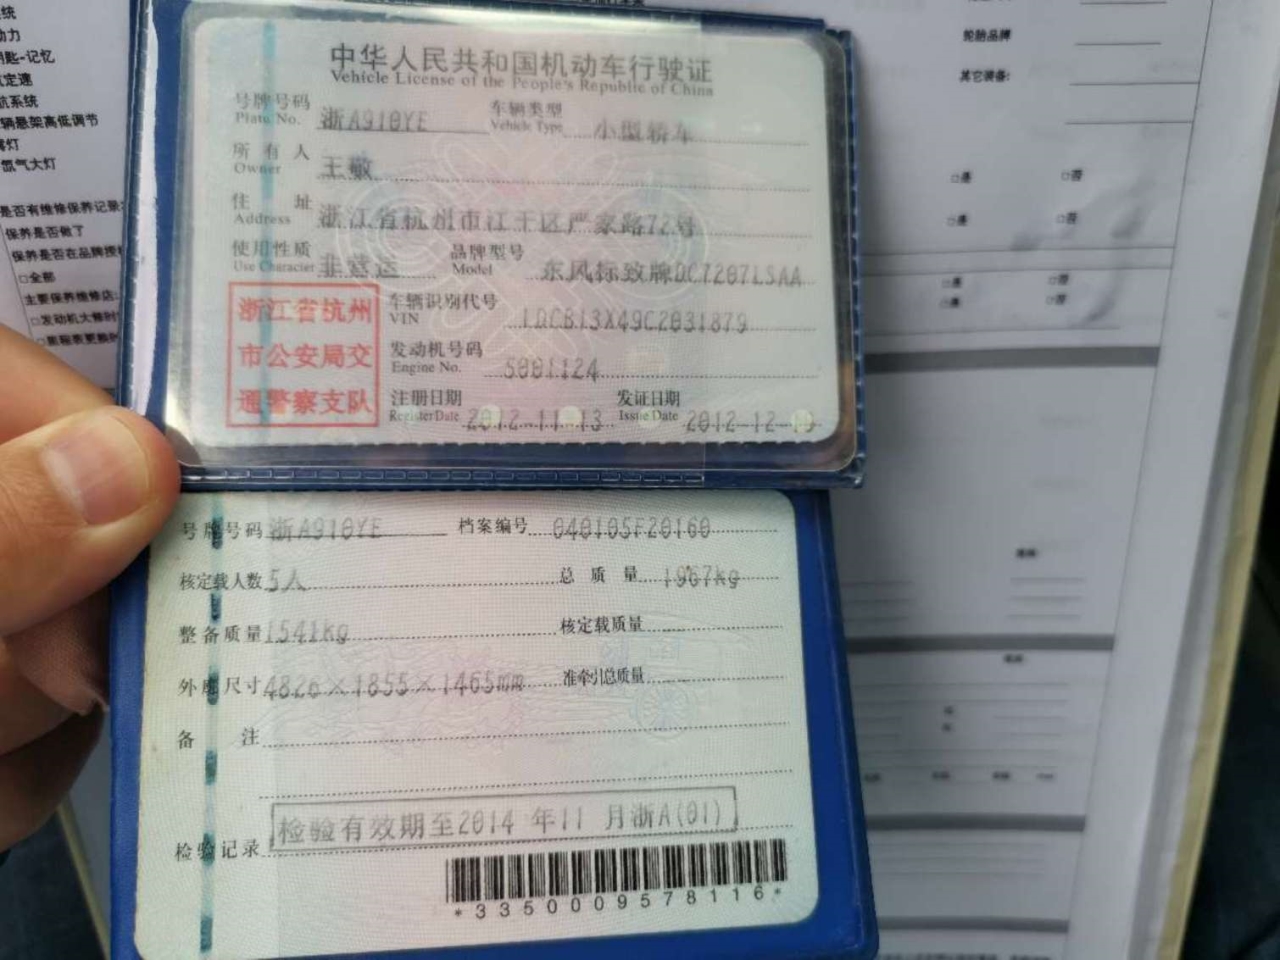 中华人民共和国机动车行驶证
Vehicle License of the People's Republic of China
号牌号码 浙A910YE 车辆类型 小型轿车
Plate No. Vehicle Type
所有人 王敬
Owner
住址 浙江省杭州市江干区严家路72号
Address
使用性质 非营运 品牌型号 东风标致牌DC7207LSAA
Use Character Model
浙江省杭州
市公安局交
通警察支队
车辆识别代号 LDCB13X49C2031879
VIN
发动机号码 5001124
Engine No.
注册日期 2012-11-13 发证日期 2012-12-19
Register Date Issue Date
号牌号码 浙A910YE 档案编号 040105F20160
核定载人数 5人 总质量 1967kg
整备质量 1541kg 核定载质量
外廓尺寸 4826×1855×1465mm 准牵引总质量
备注
检验记录 检验有效期至2014年11月浙A(01)
*3350009578116*
统
动力
钥匙-记忆
定速
航系统
辆悬架高低调节
雾灯
氙气大灯
是否有维修保养记录
保养是否做了
保养是否在品牌授权
□全部
主要保养维修店:
□发动机大修
轮胎品牌
其它装备:
□是 □否
□是 □否
□是 □否
□是 □否